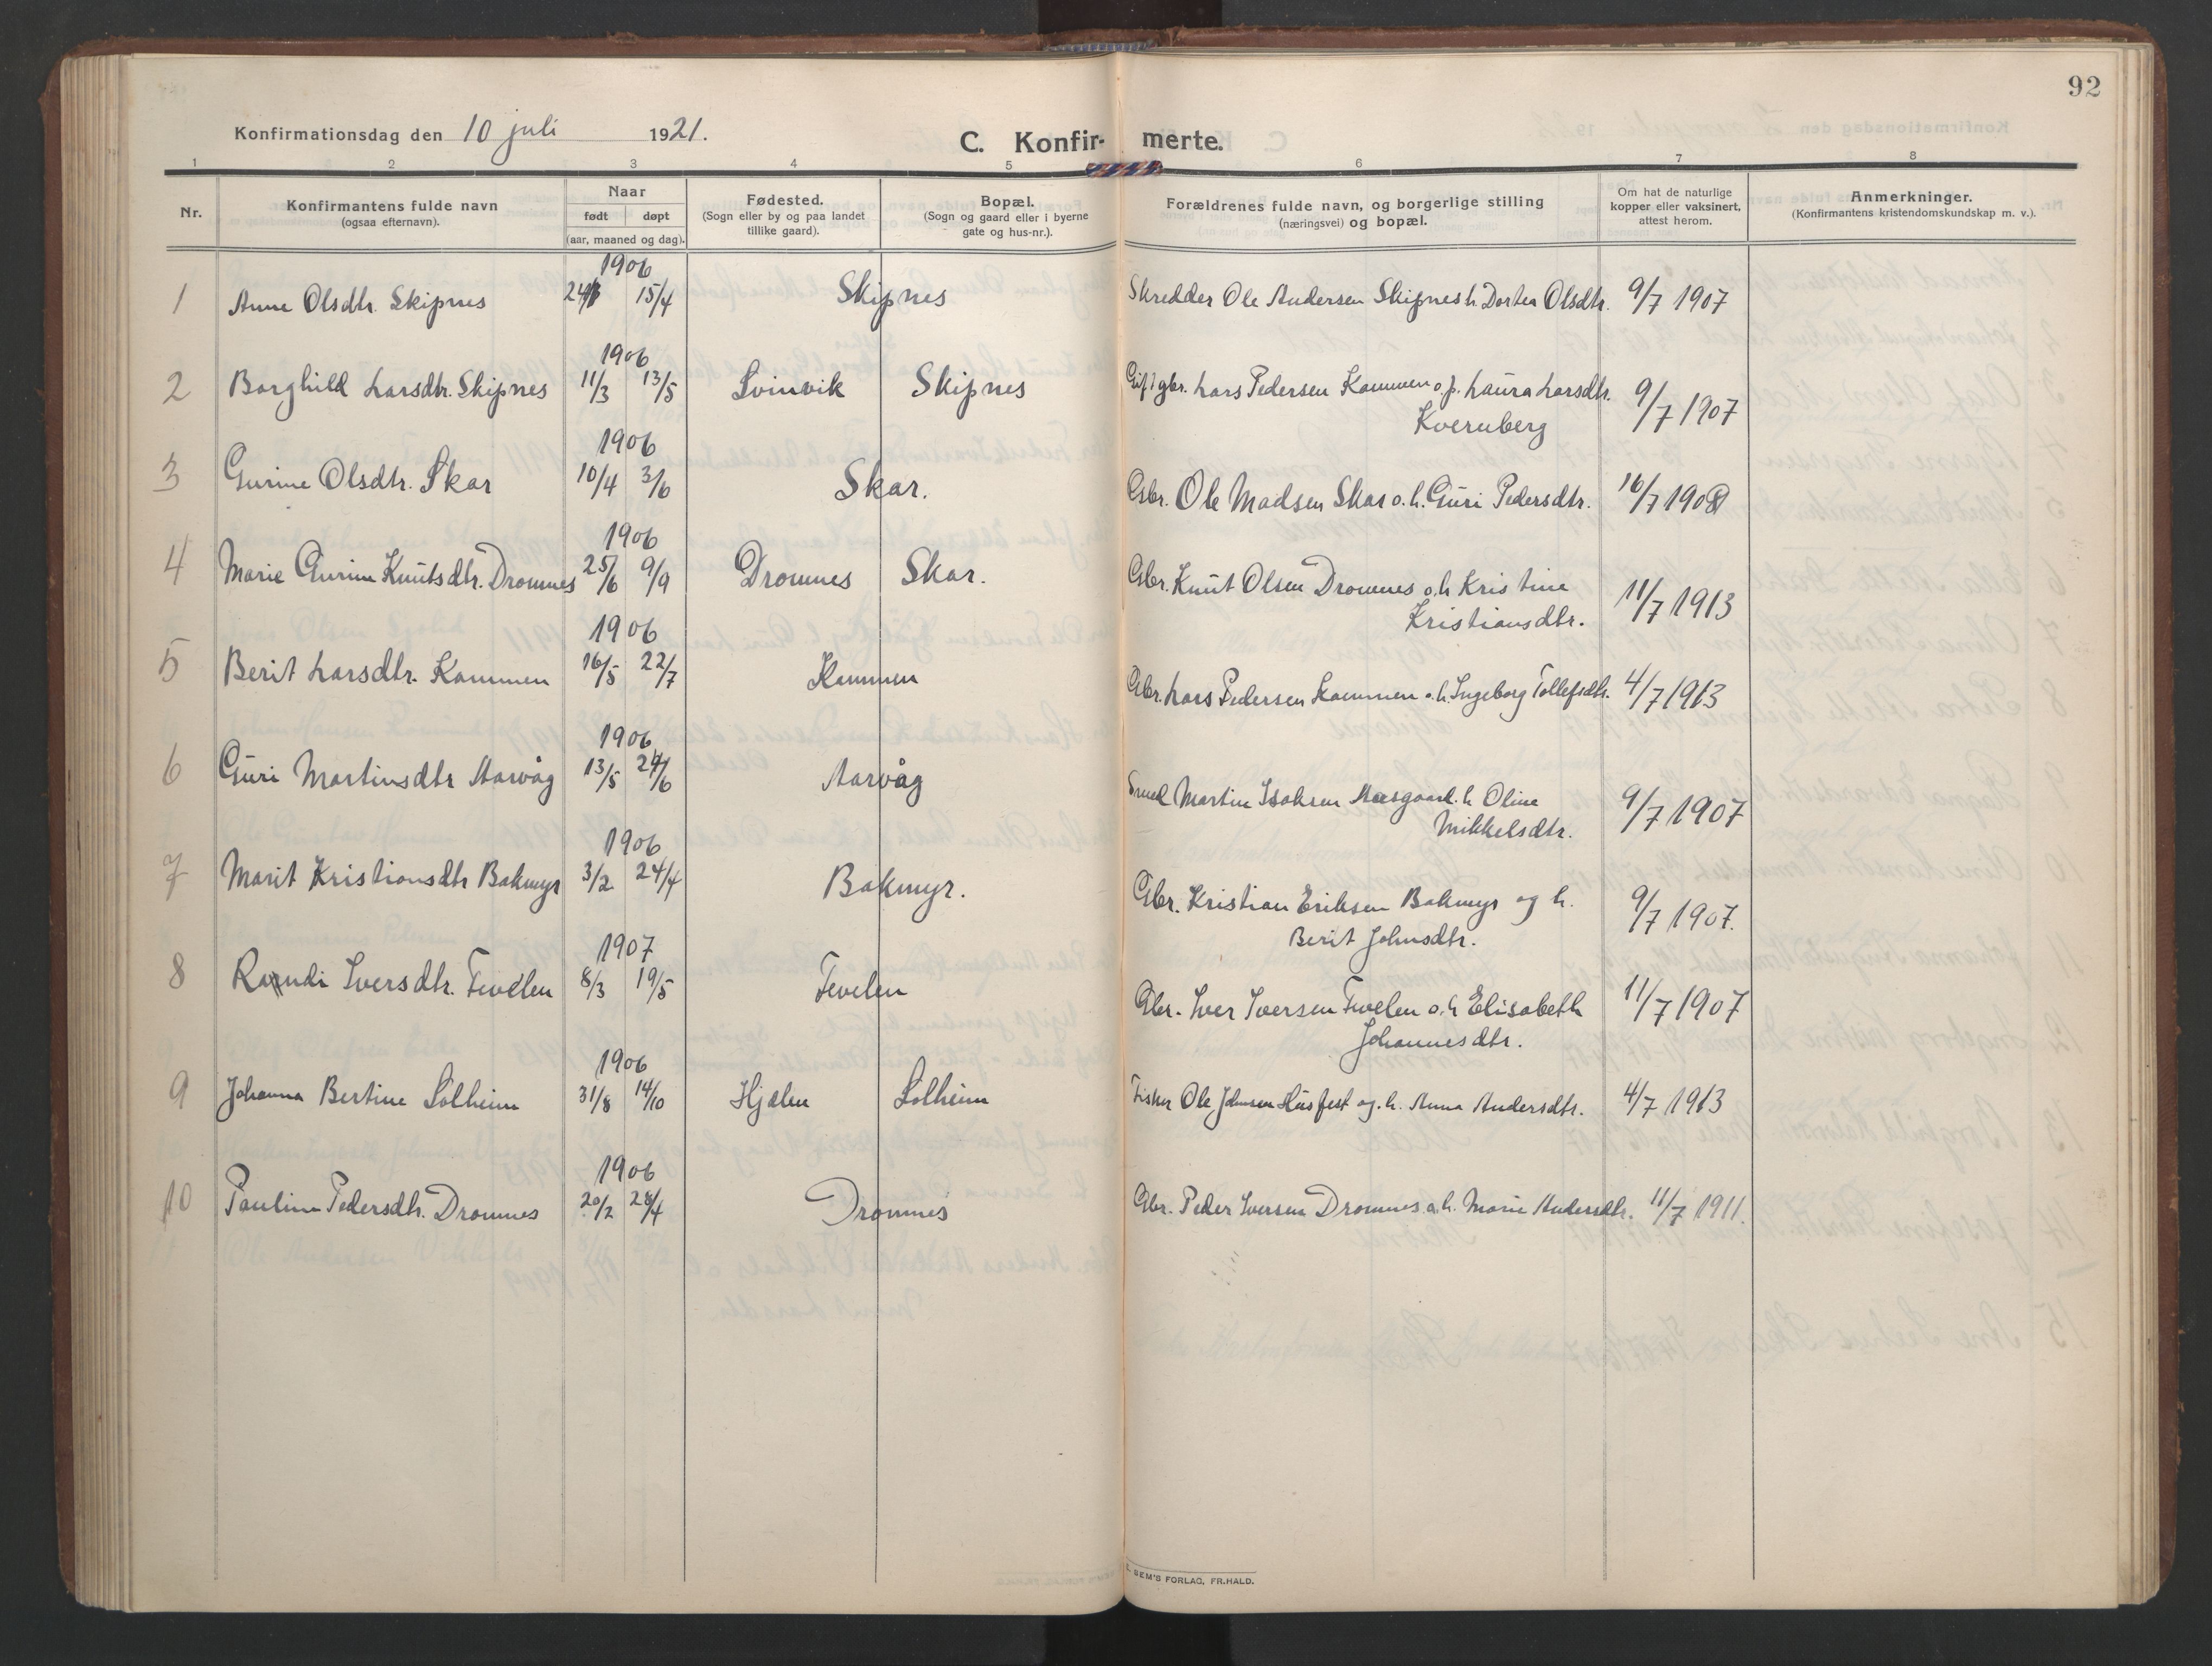 92
Konfirmationsdag den 10 juli 1921.
C. Konfir- merte.
1 2 3 4 5 6 7 8
Nr.
Konfirmantens fulde navn
(ogsaa efternavn).
Naar
født døpt
(aar, maaned og dag).
Fødested.
(Sogn eller by og paa landet
tillike gaard).
Bopæl.
(Sogn og gaard eller i byerne
gate og hus-nr.).
Forældrenes fulde navn, og borgerlige stilling
(næringsvei) og bopæl.
Om hat de naturlige
kopper eller vaksinert,
attest herom.
Anmerkninger.
(Konfirmantens kristendomskundskap m. v.).
1906
1 Anne Olsdtr. Skipnes 24/3 15/4 Skipnes Skredder Ole Andersen Skipnes h. Dortea Olsdtr. 9/7 1907
1906
2 Borghild Larsdtr. Skipnes 11/3 13/5 Svinvik Skipnes Gift gbr. Lars Pedersen Kammen o. p. Laura Larsdtr. 9/7 1907
Kvernberg
1906
3 Gurine Olsdtr. Skar 10/4 3/6 Skar. Gbr. Ole Madsen Skar o. h. Guri Pedersdtr. 16/7 1908
1906
4 Marie Gurine Knutsdtr. Dromnes 25/6 9/9 Dromnes Skar. Gbr. Knut Olsen Dromnes o. h Kristine 11/7 1913
Kristiansdtr.
1906
5 Berit Larsdtr. Kammen 16/5 22/7 Kammen Gbr. Lars Pedersen Kammen o. h. Ingeborg Tollefsdtr. 4/7 1913
1906
6 Guri Martinsdtr Aarvåg 13/5 24/6 Aarvåg Smed Martin Isaksen h Oline 9/7 1907
Mikkelsdtr.
1906
7 Marit Kristiansdtr Bakmyr 3/2 24/4 Bakmyr. Gbr. Kristian Eriksen Bakmyr og h. 9/7 1907.
Berit Johnsdtr.
1907
8 Randi Iversdtr. Tevelen 8/3 19/5 Tevelen Gbr. Iver Iversen Tevelen o. h Elisabeth 11/7 1907
Johannesdtr.
1906
9 Johanna Bertine Solheim 31/8 14/10 Hjælen Solheim Fisker Ole Johnsen Husfest og. h. Anna Andersdtr. 4/7 1913
1906
10 Pauline Pedersdtr. Dromnes 20/2 28/4 Dromnes Gbr. Peder Iversen Dromnes o. h. Marie Andersdtr. 11/7 1911.
SEM'S FORLAG, FR.HALD.